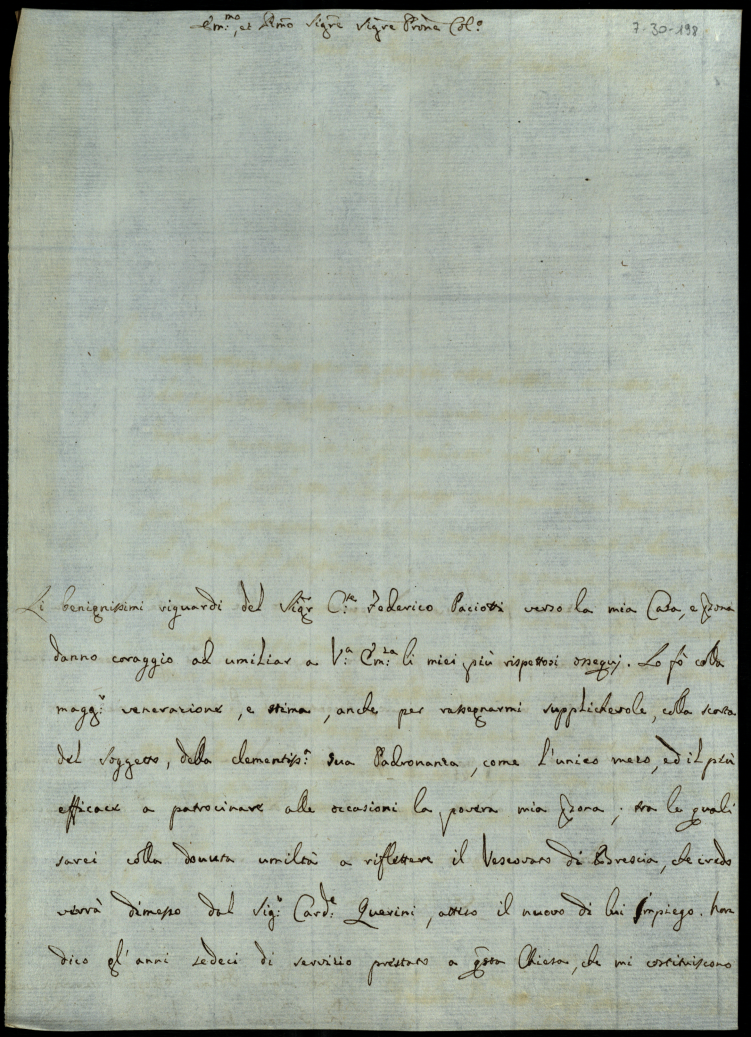 Em:mo, et Rmo Sigre Sigre Prone Col:o
7-30-198
Li benignissimi riguardi del Sigr C:te Federico Paciotti verso la mia Casa, e
danno coraggio ad umiliar a V:a Em:za li miei più rispettosi ossequj. Lo fò colla
magg:r venerazione, e stima, anche per rassegnarmi supplichevole, colla scorta
del soggetto, della clementiss:a sua Padronanza, come l'unico mezo, ed il più
efficace a patrocinare alle occasioni la povera mia ; tra le quali
sarei colla dovuta umiltà a riflettere il Vescovato di Brescia, che credo
verrà dimesso dal Sig:r Card:e Querini, atteso il nuovo di lui Impiego. Non
dico gl'anni sedeci di servizio prestato a qsta Chiesa, che mi costituiscono